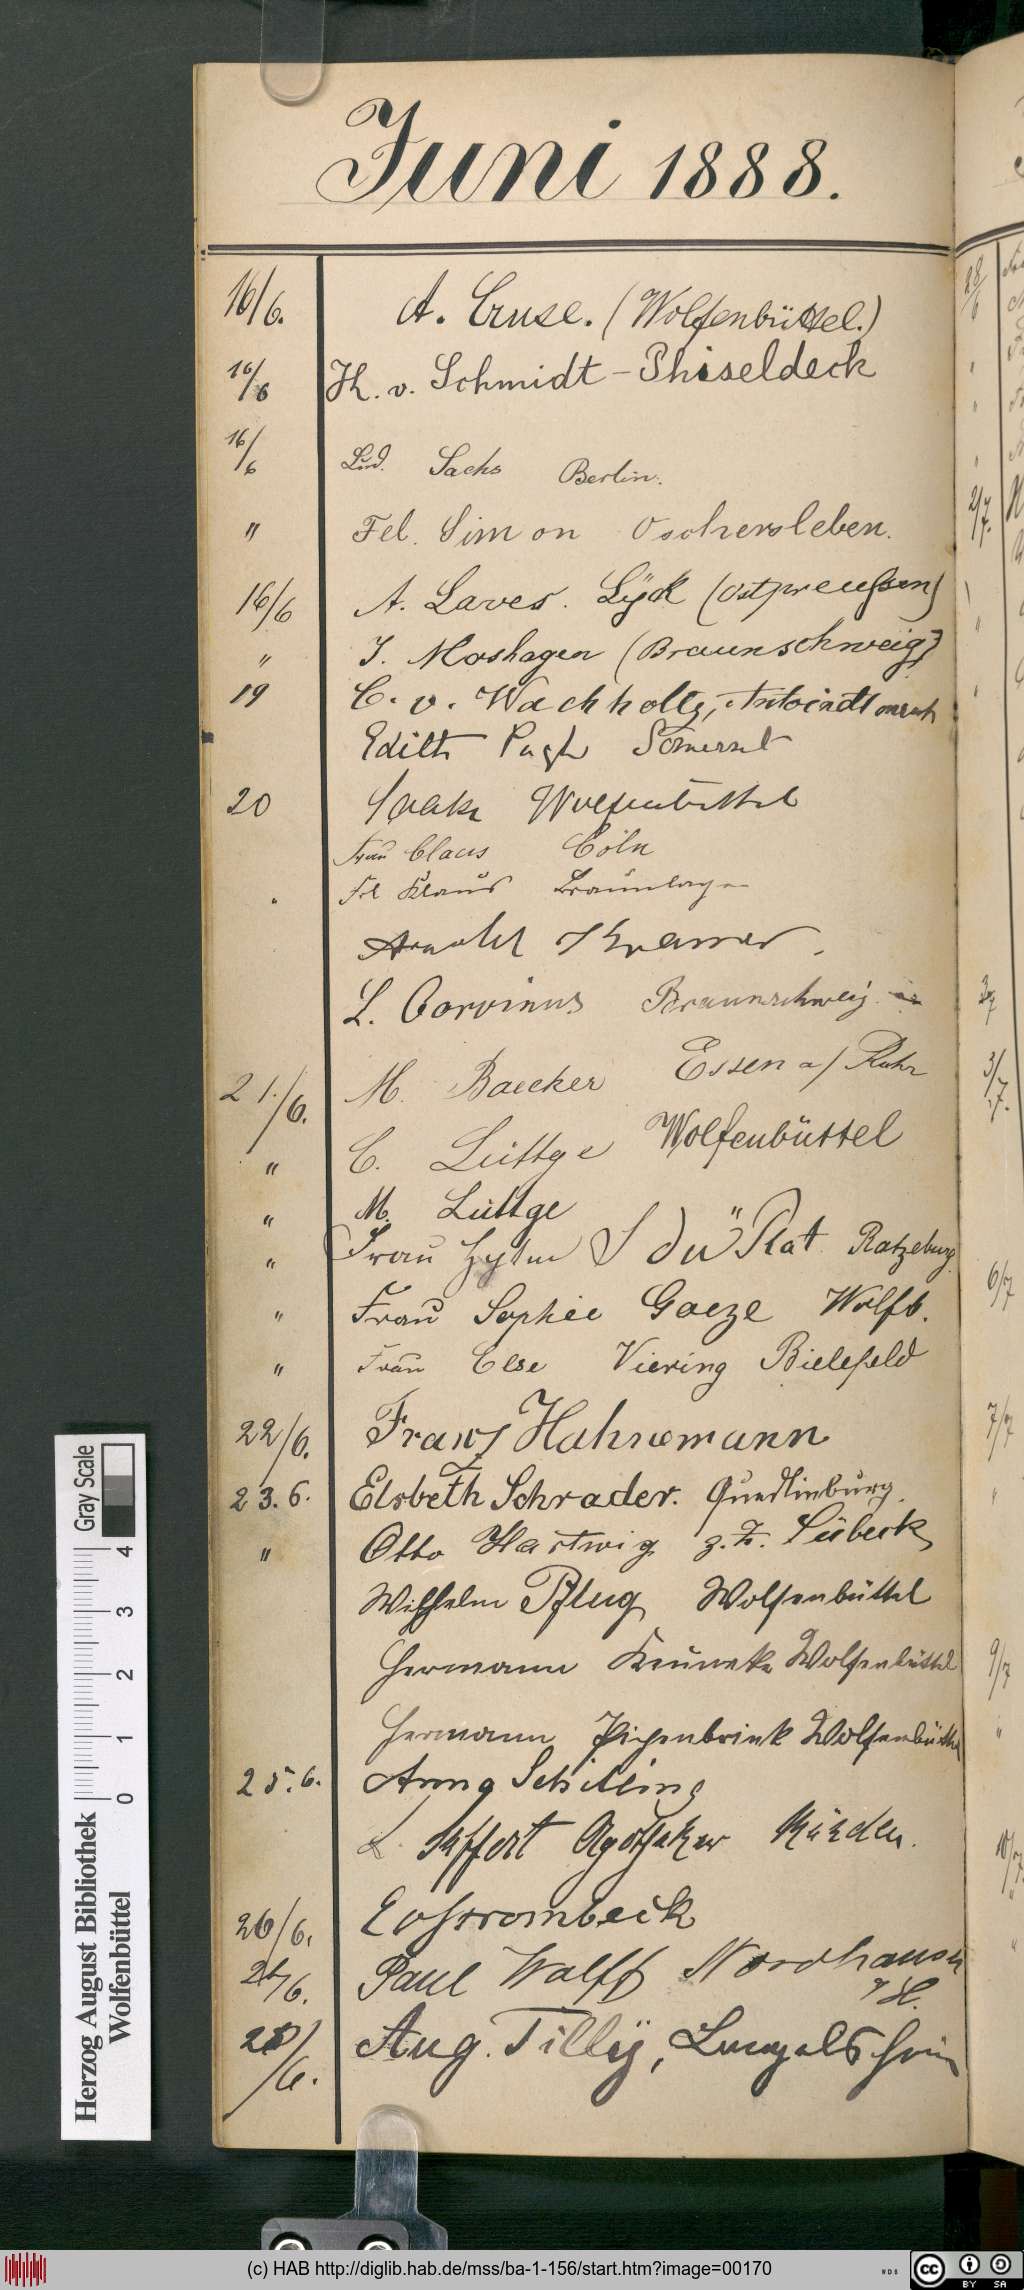 Juni 1888.
16/6. A. Cruse. (Wolfenbüttel.)
16/6 H. v. Schmidt-Phiseldeck
16/6 Lud. Sachs Berlin.
" Fel. Simon Oschersleben.
16/6 A. Laves. Lyck (Ostpreußen)
" J. Moshagen (Braunschweig)
19 C. v. Wachholtz,
Edith Pugh Somerset
20 Wolfenbüttel
Frau Claus Cöln
" Frl Klaus Braunlage
Arnold Kramer.
L. Corvinus Braunschweig
21./6. M. Baecker Essen a/ Ruhr
" C. Lüttge Wolfenbüttel
" M. Lüttge
" Frau Ratzeburg
" Frau Sophie Goeze Wolfb.
" Frau Else Viering Bielefeld
22/6. Franz Hahnemann
23.6. Elsbeth Schrader. Quedlinburg.
" Otto Hartwig z. Z. Lübeck
Wilhelm Pflug Wolfenbüttel
Hermann Wolfenbüttel
Hermann Pischenbrink Wolfenbüttel
25.6. Anna Schilling
Apotheker
26/6.
26/6. Paul Wolff Nordhausen
a/H.
28/6. Aug. Tilly,
28/6
"
"
2/7.
"
"
3/7.
6/7
7/7
"
9/7
"
10/7
"
Gray Scale
0 1 2 3 4
Herzog August Bibliothek
Wolfenbüttel
(c) HAB http://diglib.hab.de/mss/ba-1-156/start.htm?image=00170
WDB
cc BY SA